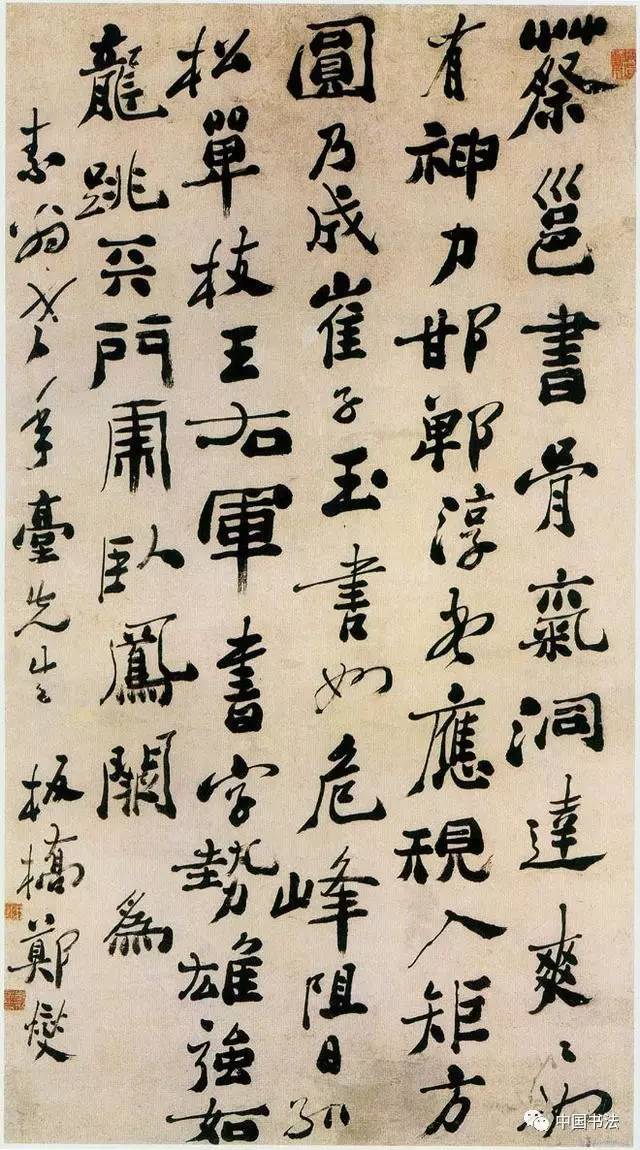 蔡邕書骨氣洞達爽爽如
有神力邯鄲淳書應規入矩方
圓乃成崔子玉書如危峰阻日孤
松單枝王右軍書字勢雄強如
龍跳天門虎臥鳳闕 為
素翁老年臺先生 板橋鄭燮
中国书法